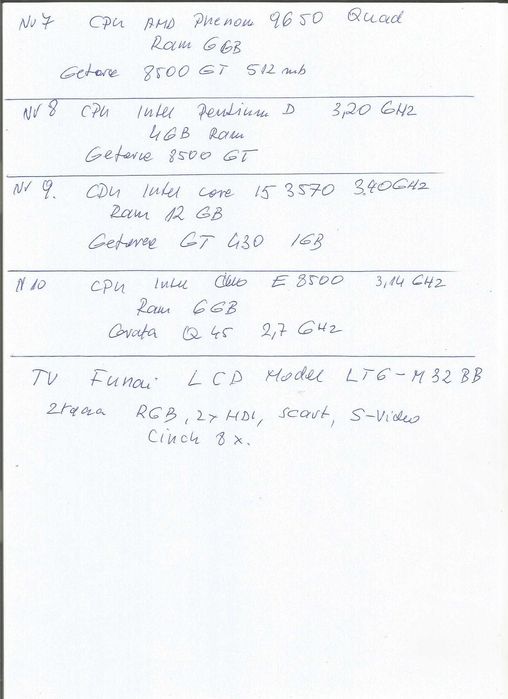 Nv 7 CPU AMD Phenom 9650 Quad
Ram 6GB
Geforce 8500 GT 512 mb
Nv 8 CPU Intel Pentium D 3,20 GHz
4GB Ram
Geforce 8500 GT
Nv 9. CPU Intel core i5 3570 3,40GHz
Ram 12 GB
Geforce GT 430 1GB
N 10 CPU Intel E 8500 3,14 GHz
Ram 6GB
Q 45 2,7 GHz
TV Funai LCD Model LT6-M32BB
RGB, 2x HDI, scart, S-Video
Cinch 8x.